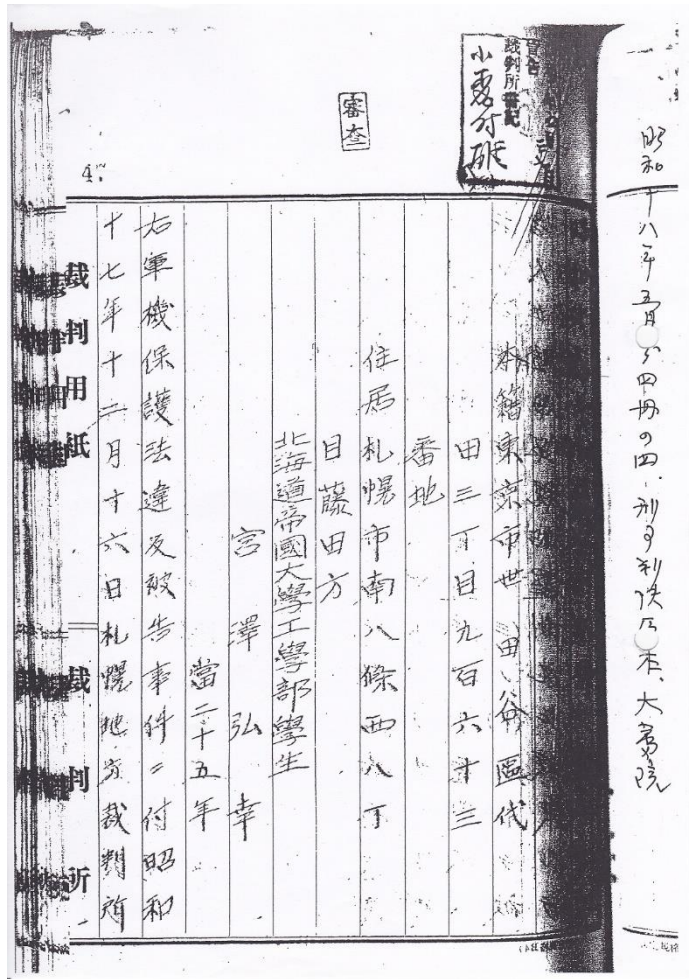 昭和十八年五月分四冊の四、刑事判決原本、大審院
裁判所書記
審査
本籍東京市世田谷區代
田三丁目九百六十三
番地
住居札幌市南八條西八丁
目藤田方
北海道帝國大學工學部學生
宮澤弘幸
當二十五年
右軍機保護法違反被告事件ニ付昭和
十七年十二月十六日札幌地方裁判所
裁判用紙
裁判所